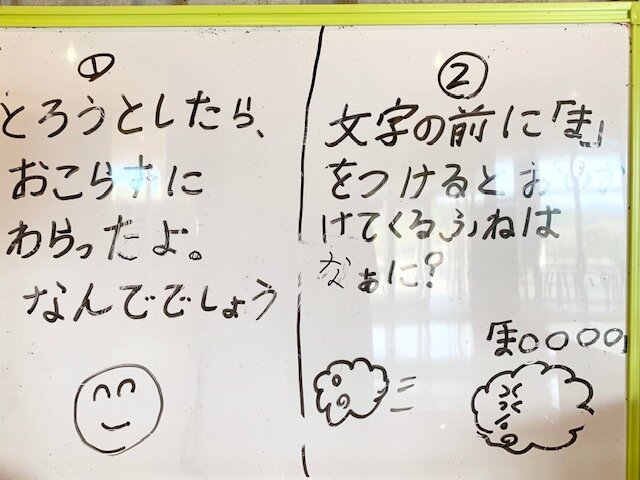 ①
とろうとしたら、
おこらずに
わらったよ。
なんででしょう
②
文字の前に「ま」
をつけるとおいか
けてくるふねは
なぁに?
「ま○○○○」